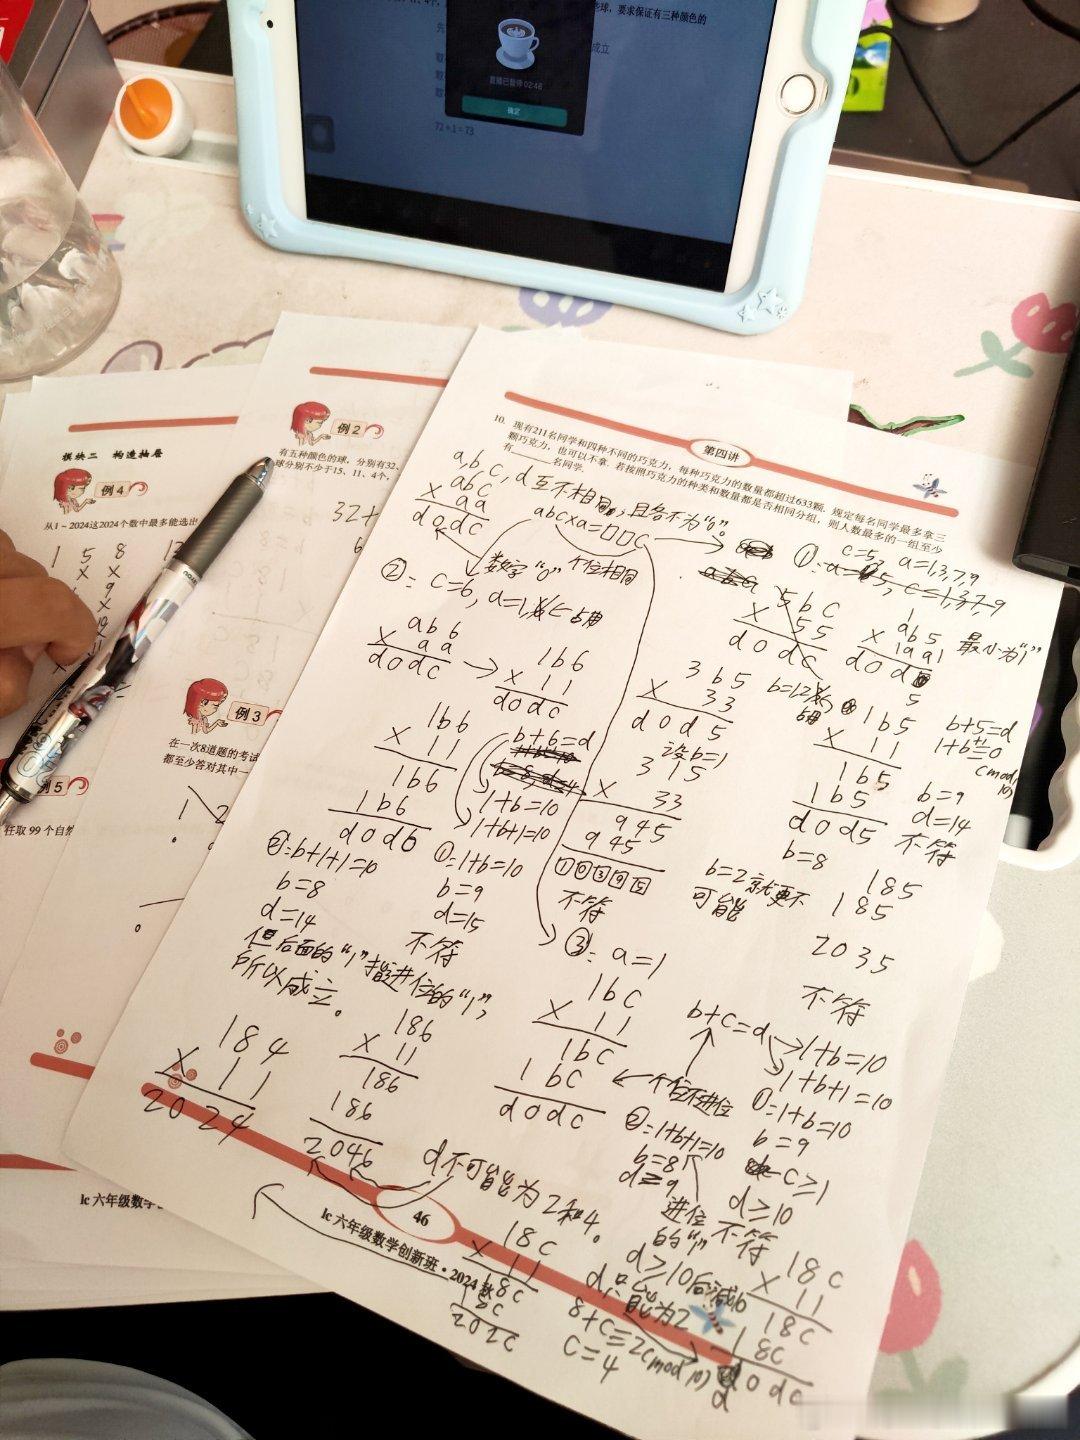 些球，要求保证有三种颜色的
成立
直播已暂停 02:46
确定
72+1=73
模块二 构造抽屉
例4
从1～2024这2024个数中最多能选出
1 5 8
例5
任取 99 个自然
例2
有五种颜色的球，分别有32、
球分别不少于15、11、4个，
32+
例3
在一次8道题的考试
都至少答对其中一
1 2
lc 六年级数学
第四讲
10. 现有211名同学和四种不同的巧克力，每种巧克力的数量都超过633颗. 规定每名同学最多拿三
颗巧克力，也可以不拿. 若按照巧克力的种类和数量都是否相同分组，则人数最多的一组至少
有______名同学.
a,b,c,d互不相同,且各不为"0"。
abc
× aa
dodc
abc×a=□□c
数字"0"
个位相同
①: c=5, a=1,3,7,9
a=5, c=1,3,7,9
5bc
× 55
dodc
ab5
× aa
dod
5
最小为"1"
②: c=6, a=1,
ab6
× aa
dodc
→
1b6
× 11
dodc
3b5
× 33
dod5
设b=1
315
× 33
945
945
10395
不符
b=2就更不
可能
1b5
× 11
1b5
1b5
dod5
b+5=d
1+b≡0
(mod 10)
b=9
d=14
不符
b=8
185
185
2035
不符
1b6
× 11
1b6
1b6
dod6
b+6=d
1+b=10
1+b+1=10
①:1+b=10
b=9
d=15
不符
②:b+1+1=10
b=8
d=14
但后面的"1"指进位的"1",
所以成立。
184
× 11
2024
186
× 11
186
186
2046
d不可能为2和4。
③: a=1
1bc
× 11
1bc
1bc
dodc
← 个位不进位
b+c=d
→1+b=10
1+b+1=10
①:1+b=10
b=9
c≥1
d≥10
不符
②:1+b+1=10
b=8
d≥9
进位
的"1"
d≥10后减10
d只能为2
8+c≡2(mod 10)
c=4
18c
× 11
18c
18c
202c
18c
× 11
18c
18c
dodc
d
46
lc 六年级数学创新班·2024 秋